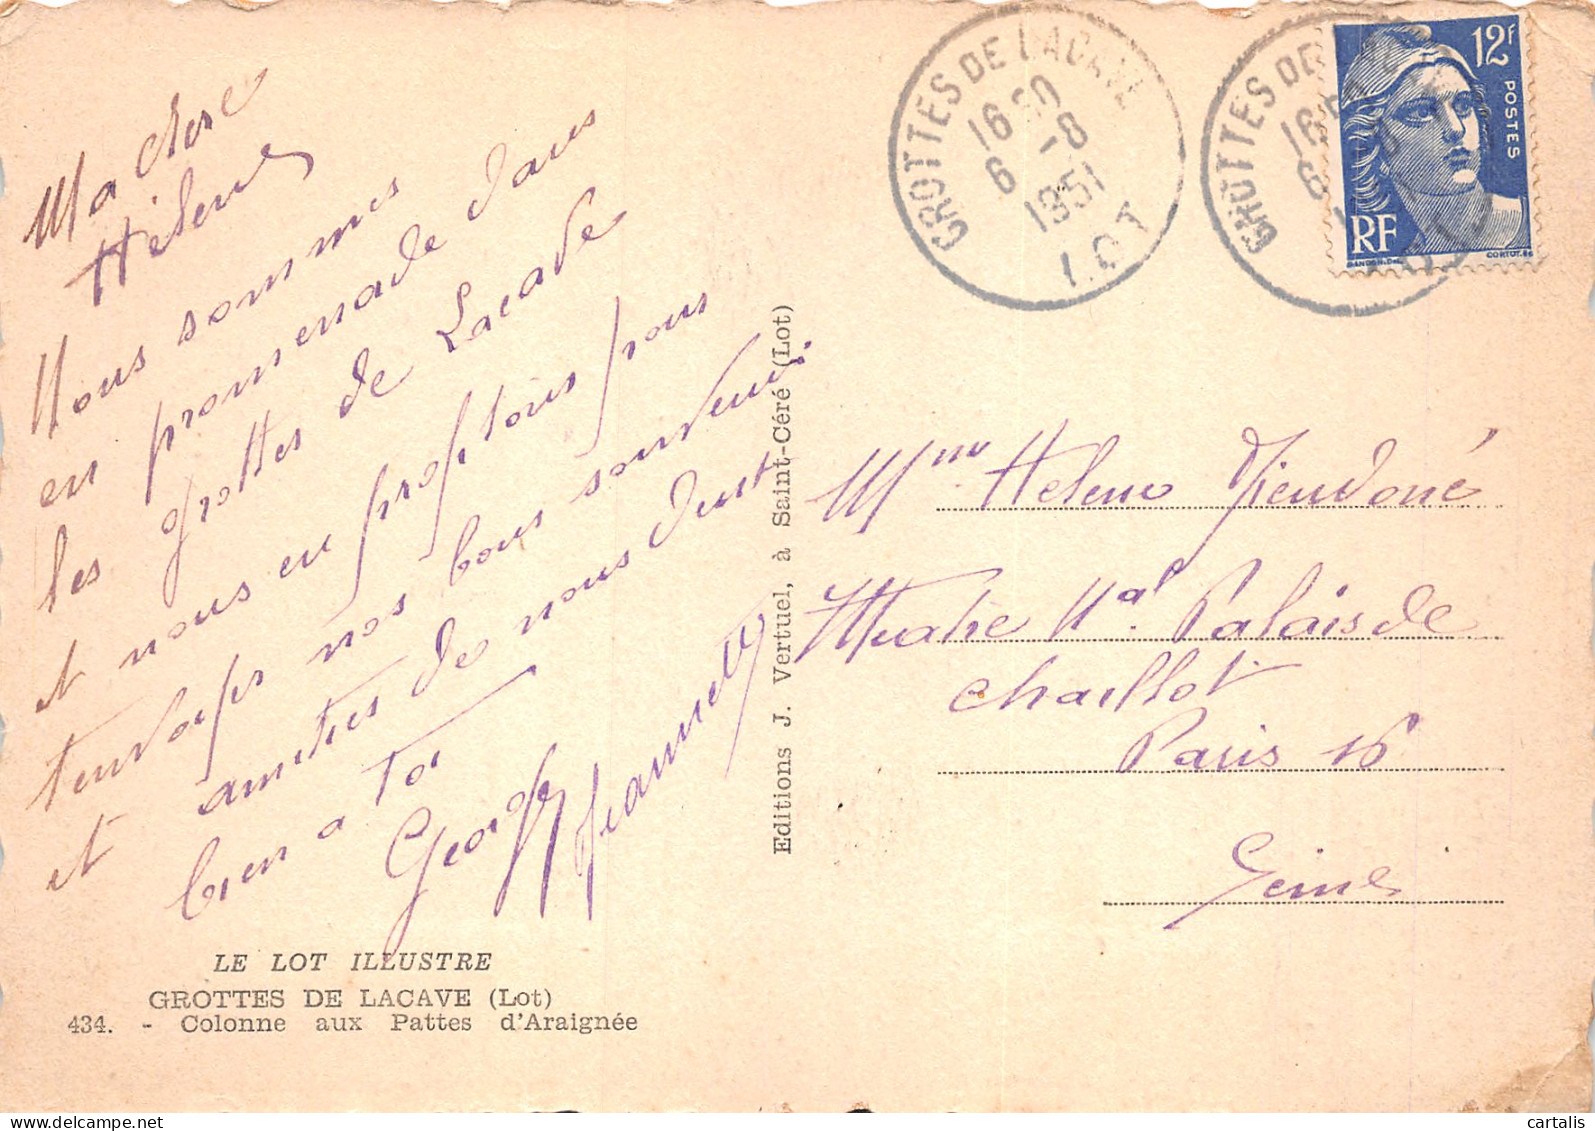 Ma chere
Hélène
Nous sommes
en promenade dans
les grottes de Lacave
et nous en profitons pour
t'envoyer nos bons souvenirs
et amities de nous deux
bien a toi
George
Jeannette
LE LOT ILLUSTRE
GROTTES DE LACAVE (Lot)
434. - Colonne aux Pattes d'Araignée
Editions J. Vertuel, à Saint-Céré (Lot)
GROTTES DE LACAVE
16 30
6 - 8
1951
LOT
GROTTES DE
16
6
12F
POSTES
RF
GANDON.DEL
CORTOT.SC
Mme Helene
Theatre Nal. Palais de
Chaillot
Paris 16
Seine
cartalis